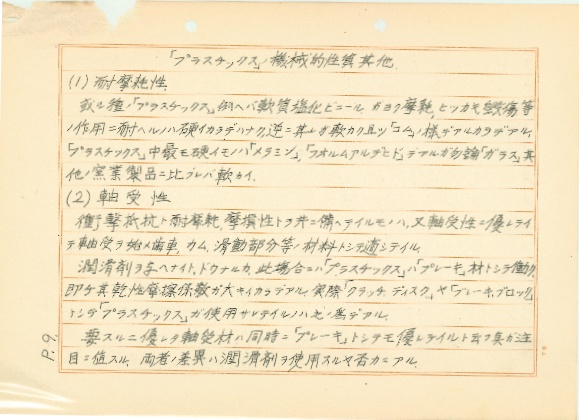 「プラスチックス」ノ機械的性質其他
(1) 耐摩耗性
或ル種ノ「プラスチックス」例ヘバ軟質塩化ビニールガヨク摩耗、ヒッカキ、毀傷等
ノ作用ニ耐ヘルノハ硬イカラデハナク、逆ニ其レガ軟カク且ツ「ゴム」ノ様デアルカラデアル。
「プラスチックス」中最モ硬イモノハ「メラミン」、「フオルムアルデヒド」デアルガ勿論「ガラス」其
他ノ窯業製品ニ比ブレバ軟カイ。
(2) 軸受性
衝撃抵抗ト耐摩耗、摩損性トヲ共ニ備ヘテイルモノハ、又軸受性ニ優レテイ
テ軸受ヲ始メ歯車、カム、滑動部分等ノ材料トシテ適シテイル。
潤滑剤ヲ与ヘナイト、ドウナルカ、此場合ニハ「プラスチックス」ハ「ブレーキ」材トシテ働ク、
即チ其乾性摩擦係数ガ大キイカラデアル。実際「クラッチ、ディスク」ヤ「ブレーキ、ブロック」
トシテ「プラスチックス」ガ使用サレテイルノハ之ノ為デアル。
要スルニ優レタ軸受材ハ同時ニ「ブレーキ」トシテモ優レテイルト云フ真ガ注
目ニ値スル。両者ノ差異ハ潤滑剤ヲ使用スルヤ否カニアル。
P.9.